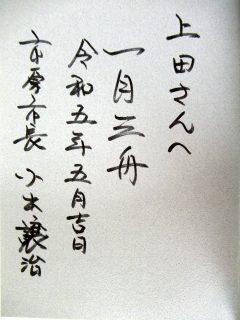 上田さんへ
一月三舟
令和五年五月吉日
市原市長 小出譲治